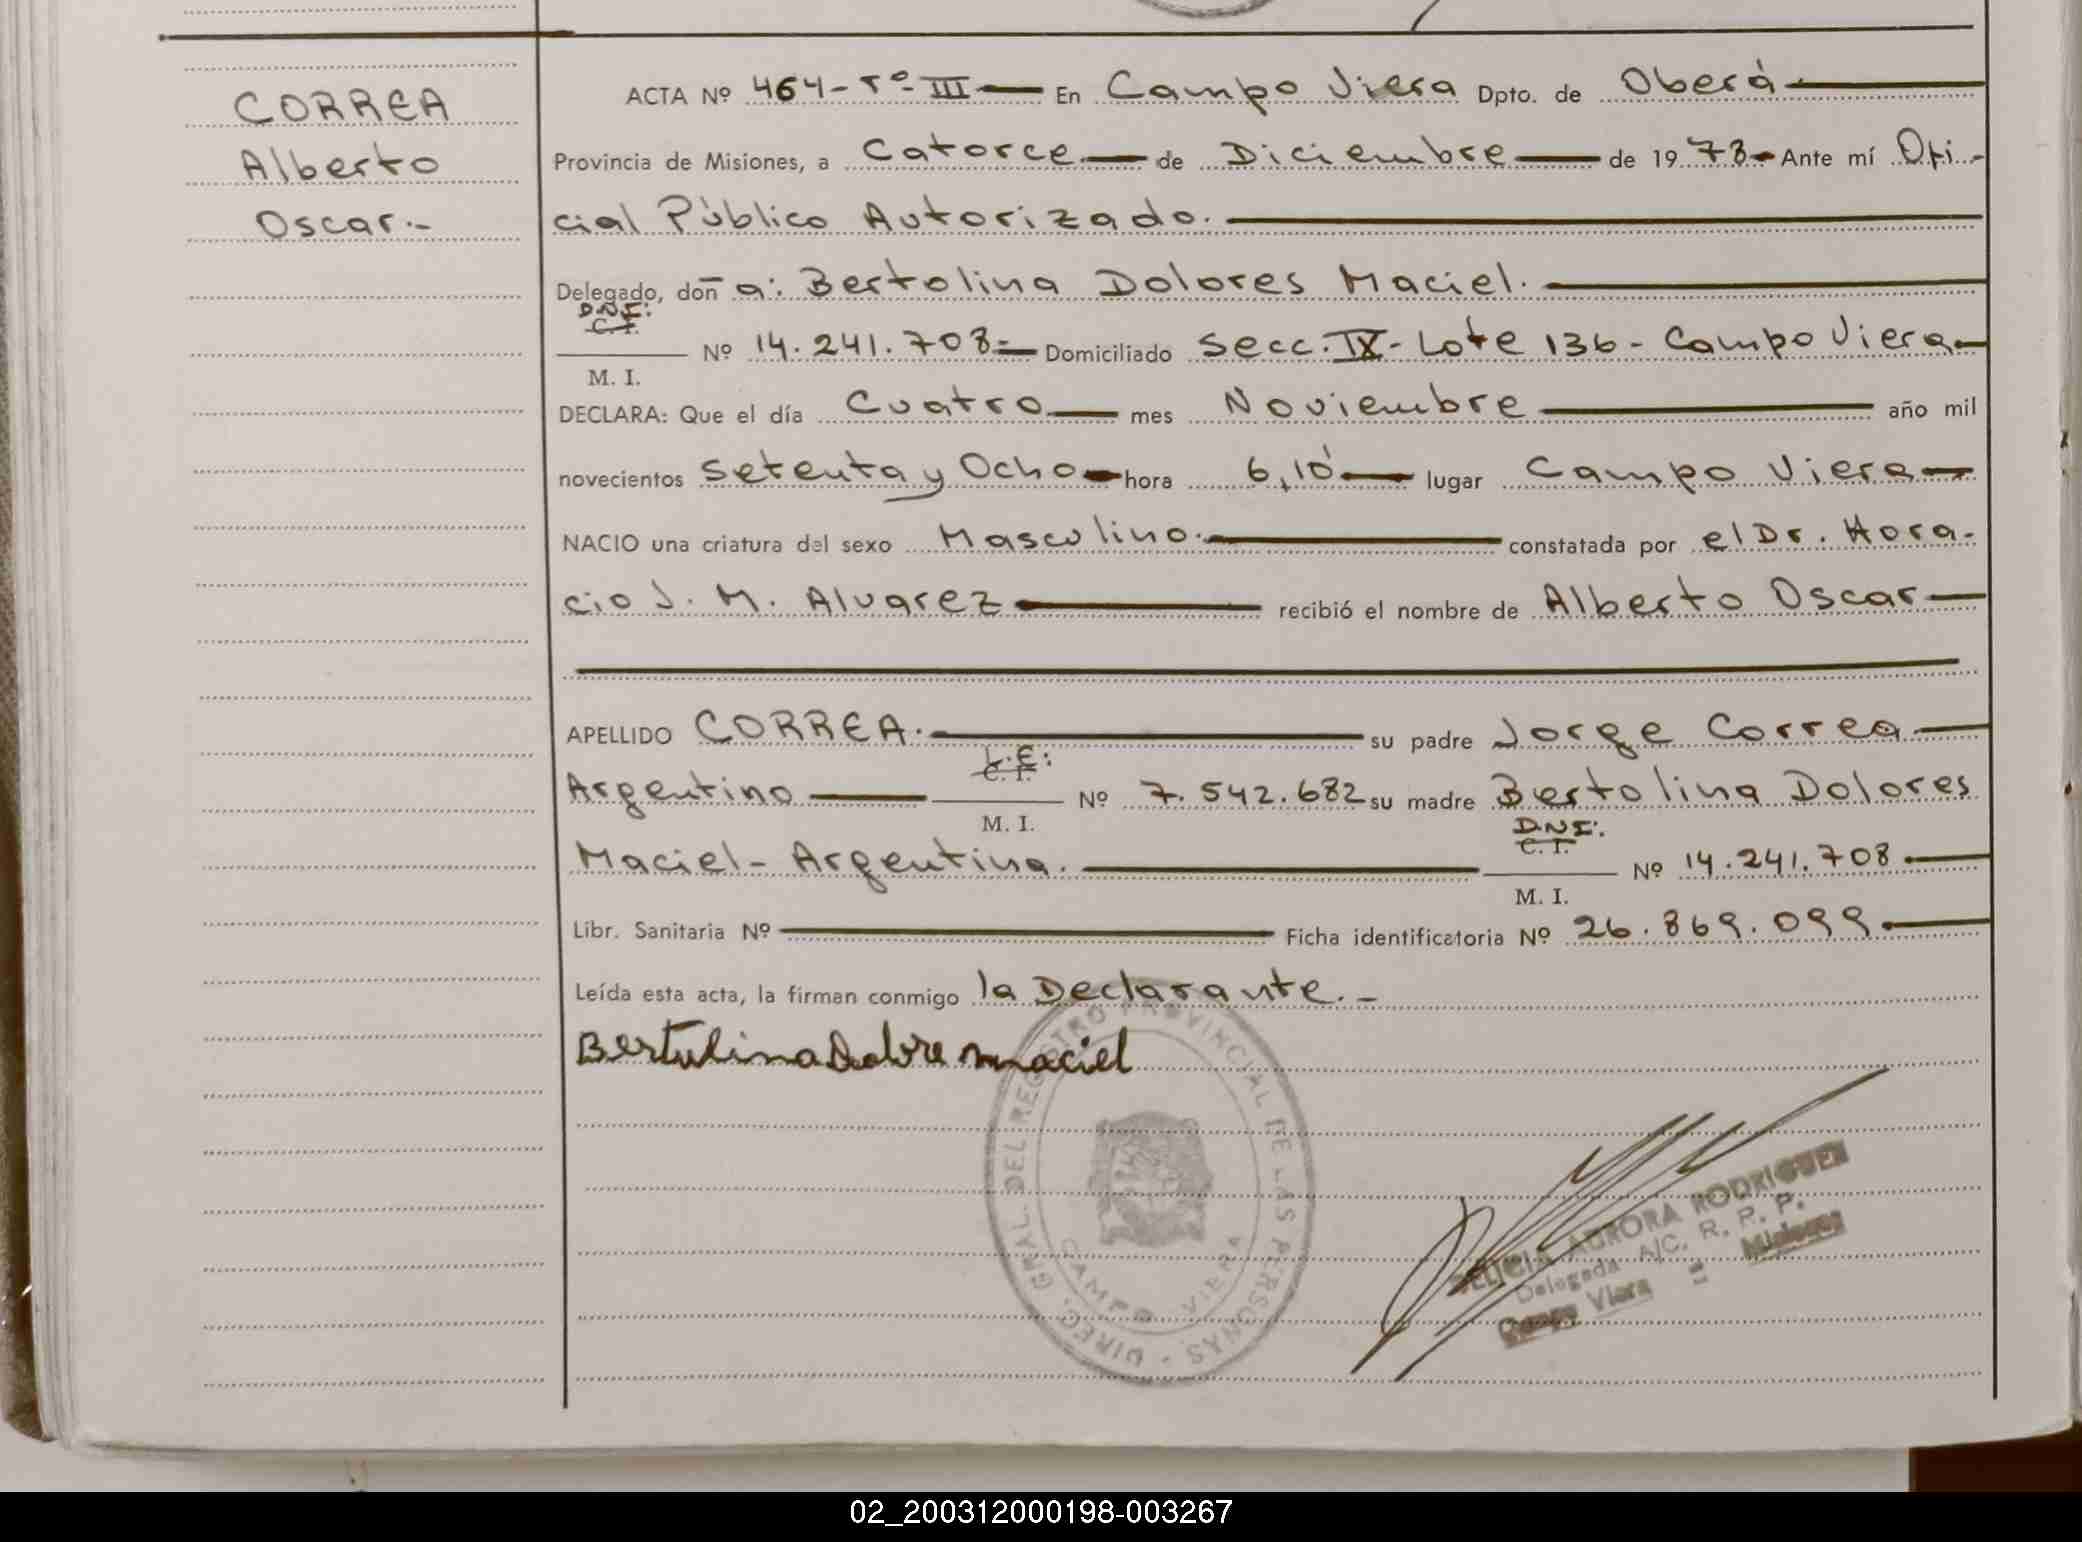 CORREA
Alberto
Oscar.-
ACTA Nº 464-Tº-III — En Campo Viera Dpto. de Oberá
Provincia de Misiones, a Catorce — de Diciembre — de 1978 - Ante mí Ofi-
cial Público Autorizado.
Delegado, don̄ a: Bertolina Dolores Maciel.
D.N.I:
C. I.
M. I. Nº 14.241.708 - Domiciliado Secc. IX - Lote 136 - Campo Viera
DECLARA: Que el día Cuatro — mes Noviembre — año mil
novecientos Setenta y Ocho - hora 6,10' — lugar Campo Viera
NACIO una criatura del sexo Masculino. — constatada por el Dr. Hora-
cio J. M. Alvarez — recibió el nombre de Alberto Oscar
APELLIDO CORREA. — su padre Jorge Correa
L.E:
C. I.
Argentino — M. I. Nº 7.542.682 su madre Bertolina Dolores
D.N.I:
C. I.
Maciel - Argentina. — M. I. Nº 14.241.708
Libr. Sanitaria Nº — Ficha identificatoria Nº 26.869.099
Leída esta acta, la firman conmigo la Declarante.-
Bertulina Dolore Maciel
DIREC. GRAL. DEL REGISTRO PROVINCIAL DE LAS PERSONAS
CAMPO VIERA
AURORA RODRIGUEZ
Delegada A/C. R. P. P.
Campo Viera Misiones
02_200312000198-003267